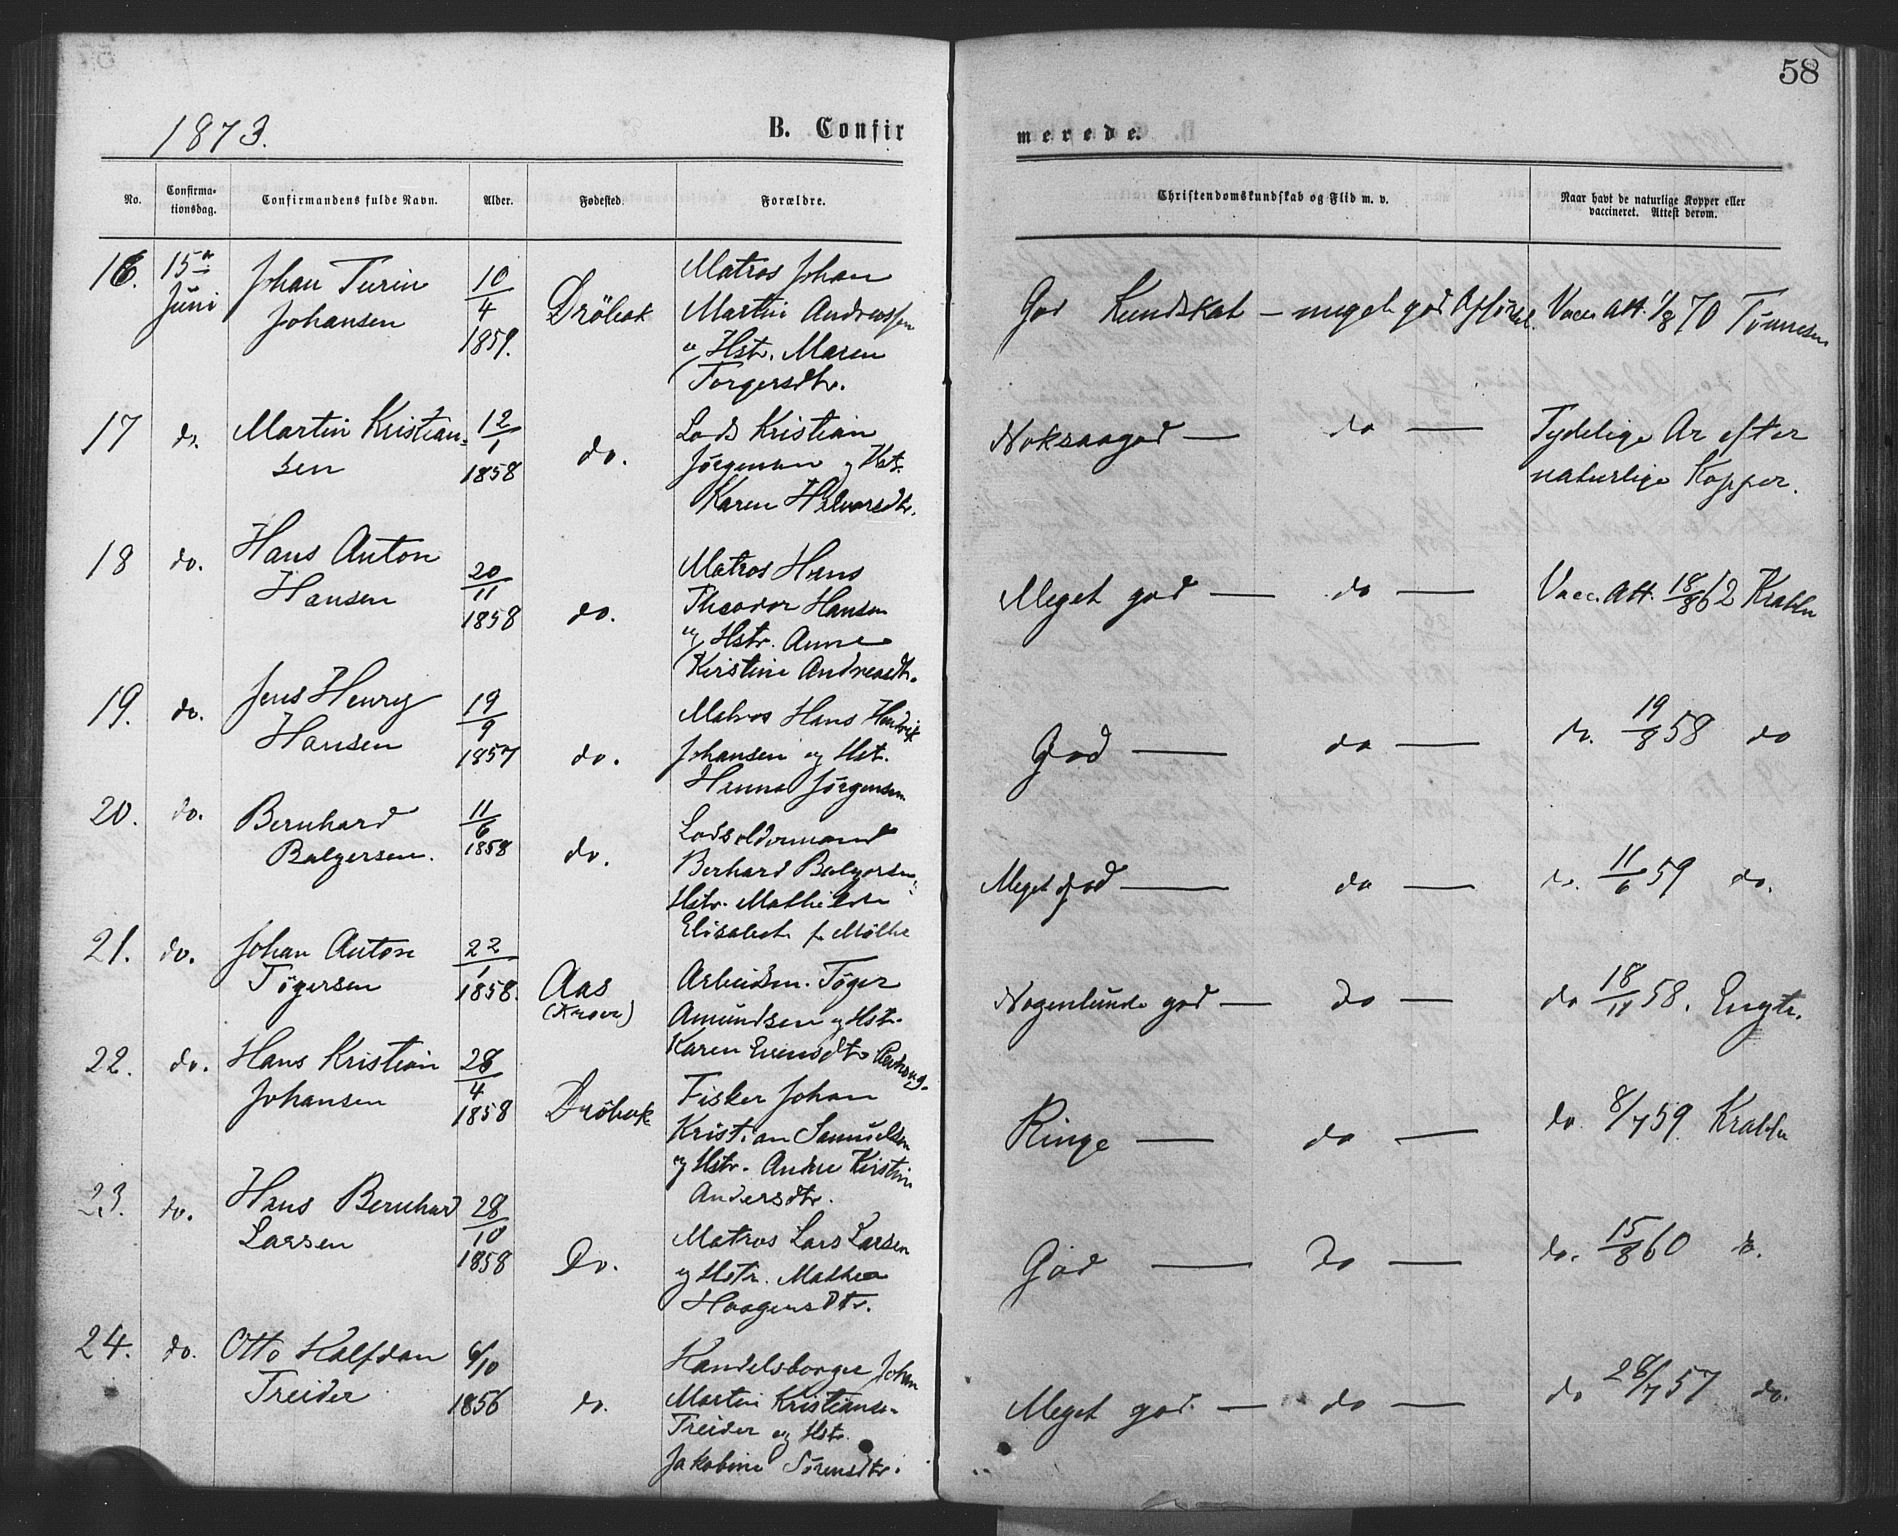 58
1873. B. Confir merede.
No. Confirma-tionsdag. Confirmandens fulde Navn. Alder. Fødested. Forældre. Christendomskundskab og Flid m. v. Naar havt de naturlige Kopper eller vaccineret. Attest derom.
16. 15de Juni
Johan Turin
Johansen
10/4
1859.
Dröbak
Matros Johan
Martin Andreassen
og Hstr. Maren
Torgersdtr.
God Kundskab — meget god Opførsel
Vacc. Att. 1/8 70 Tønnesen
17 do. Martin Kristian-
sen
12/1
1858
do.
Lods Kristian
Jørgensen og Hst.
Karen Halvorsdtr.
Noksaagod — do —
Tydelige Ar efter
naturlige Kopper.
18 do. Hans Anton
Hansen
20/11
1858
do.
Matros Hans
Theodor Hansen
og Hstr. Anne
Kirstine Andreasdtr.
Meget god — do —
Vacc. Att. 18/8 62 Krabbe
19. do. Jens Henry
Hansen
19/9
1857
do.
Matros Hans Hendrik
Johansen og Hst.
Hanna Jørgensen
God — do —
do. 19/8 58 do
20. do. Bernhard
Balgersen.
11/6
1858
do.
Lodsoldermand
Berhard Balgersen
Hstr. Mathilde
Elisabet f. Møller
Meget god — do —
do. 11/6 59 do.
21. do. Johan Anton
Tøgersen
22/1
1858.
Aas
(Kroer)
Arbeidsm. Tøger
Amundsen og Hstr.
Karen Evensdtr
Nogenlunde god — do —
do 18/11 58. Engtr.
22. do. Hans Kristian
Johansen
28/4
1858
Dröbak
Fisker Johan
Kristian Samuelsen
og Hstr. Andrea Kirstine
Andersdtr.
Ringe — do —
do. 8/7 59 Krabbe
23. do. Hans Bernhard
Larsen
28/10
1858
Do.
Matros Lars Larsen
og Hstr. Mathea
Haagensdtr.
God — do —
do. 15/8 60 do.
24. do. Otto Halfdan
Treider
6/10
1856
do.
Handelsborger Johan
Martin Kristiansen
Treider og Hstr.
Jakobine Sørensdtr.
Meget god — do —
do 28/7 57 do.